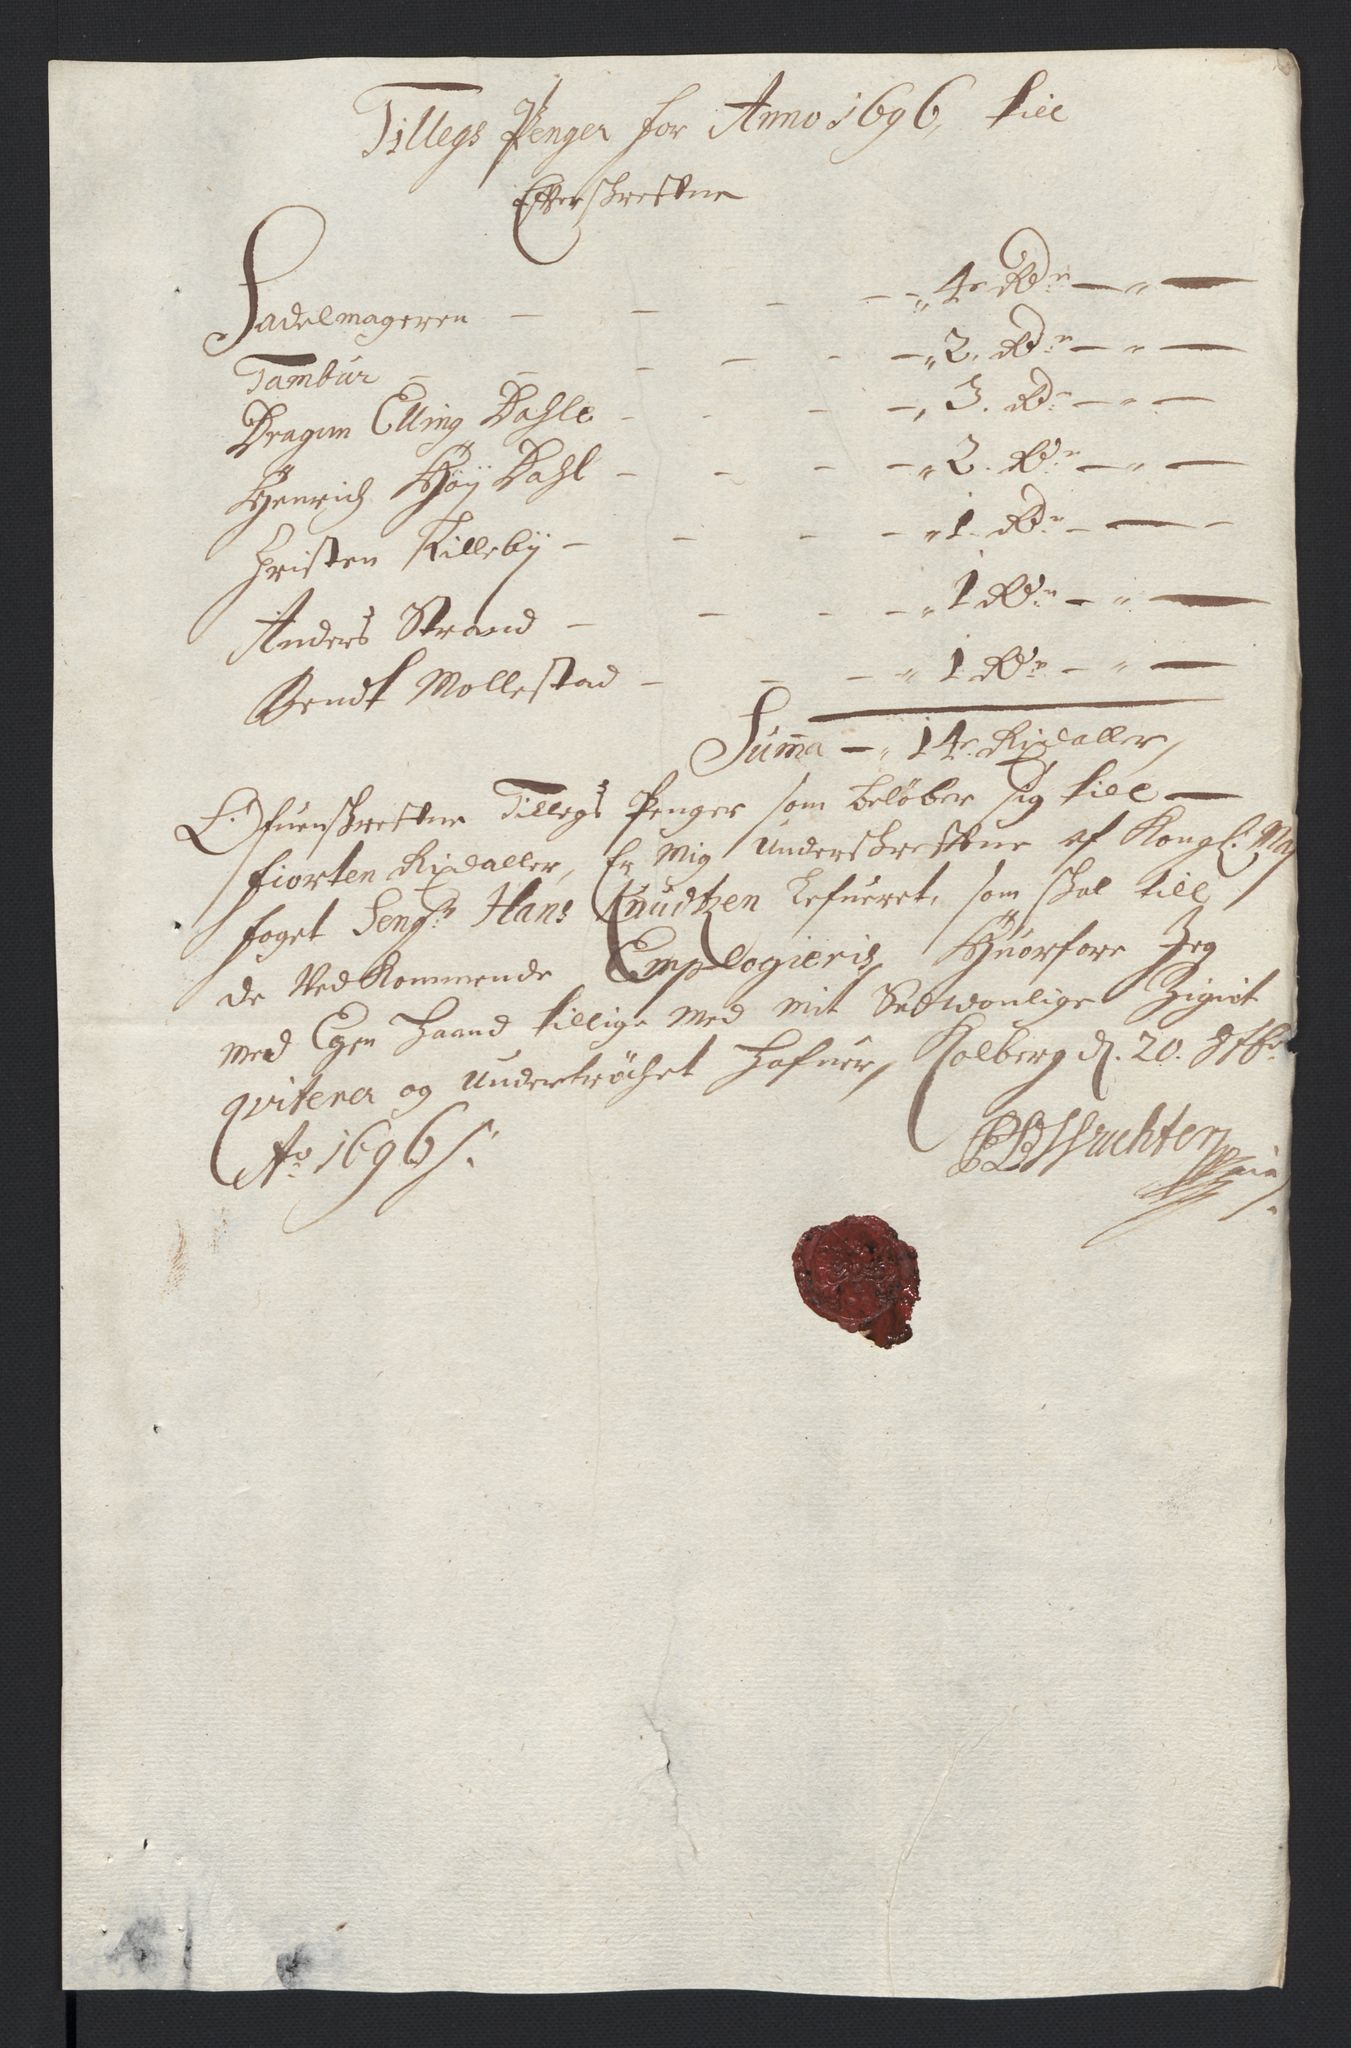 Tillegs Penger for Anno 1696, till
Efterschrefne
Sadelmageren — — — — „ 4 Rdr — „ —
Tambur — — — — — „ 2. Rdr — „ —
Dragun Elling Dahle — — — — „ 3. Rdr — „ —
Henrich Høÿ Dahl — — — — „ 2. Rdr — „ —
Christen Killebÿ — — — — „ 1. Rdr — — —
Anders Strand — — — — „ 1 Rdr — „ —
Bendt Mollestad — — — „ 1 Rdr — „ —
Summa — „ 14 Rixdaller,
Ofuenschrefne Tillegs Penger som beløber sig till —
fiorten Rixdaller, Er Mig Underschrefne af Kongl: May
foget Sengr Hans Knudtzen lefueret, som skal till
de Ved Kommende Emplogieris, Huorfore Jeg
med Egen Haand tillige med mit Sedwonlige Zignet
qviterer og undertrÿchet hafuer, Kolberg d. 20. 8tbr
Ao 1696